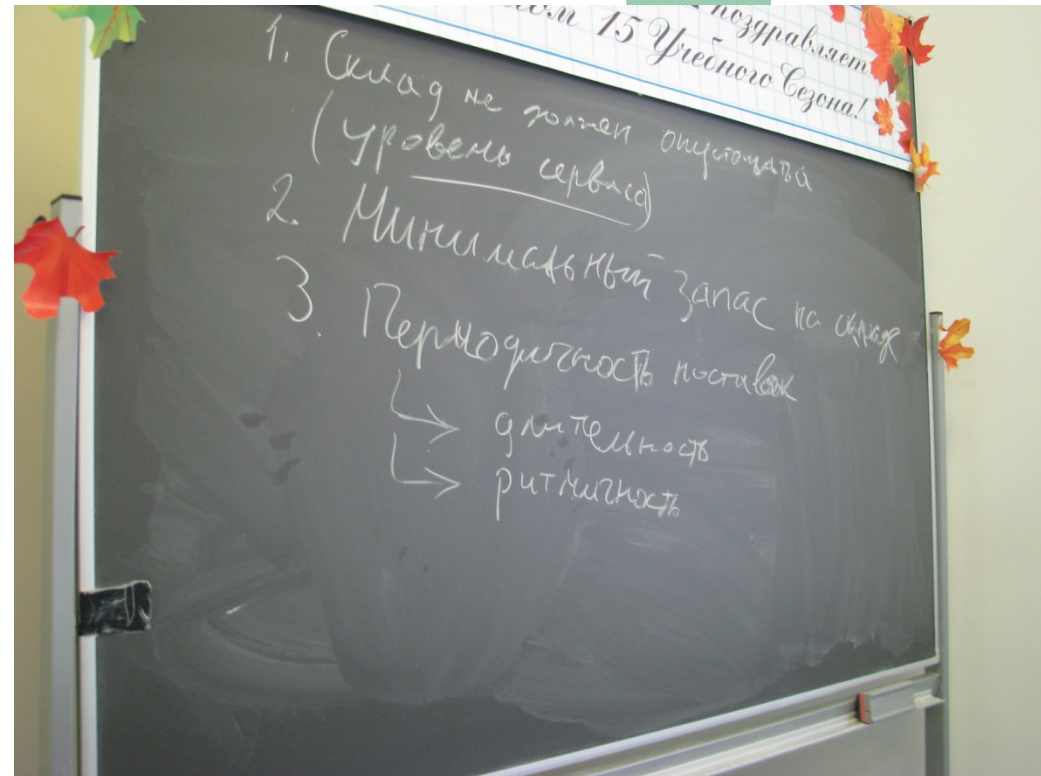 поздравляет
15 Учебного Сезона!
1. Склад не должен опустошаться
(уровень сервиса)
2. Минимальный запас на складе
3. Периодичность поставок
длительность
ритмичность